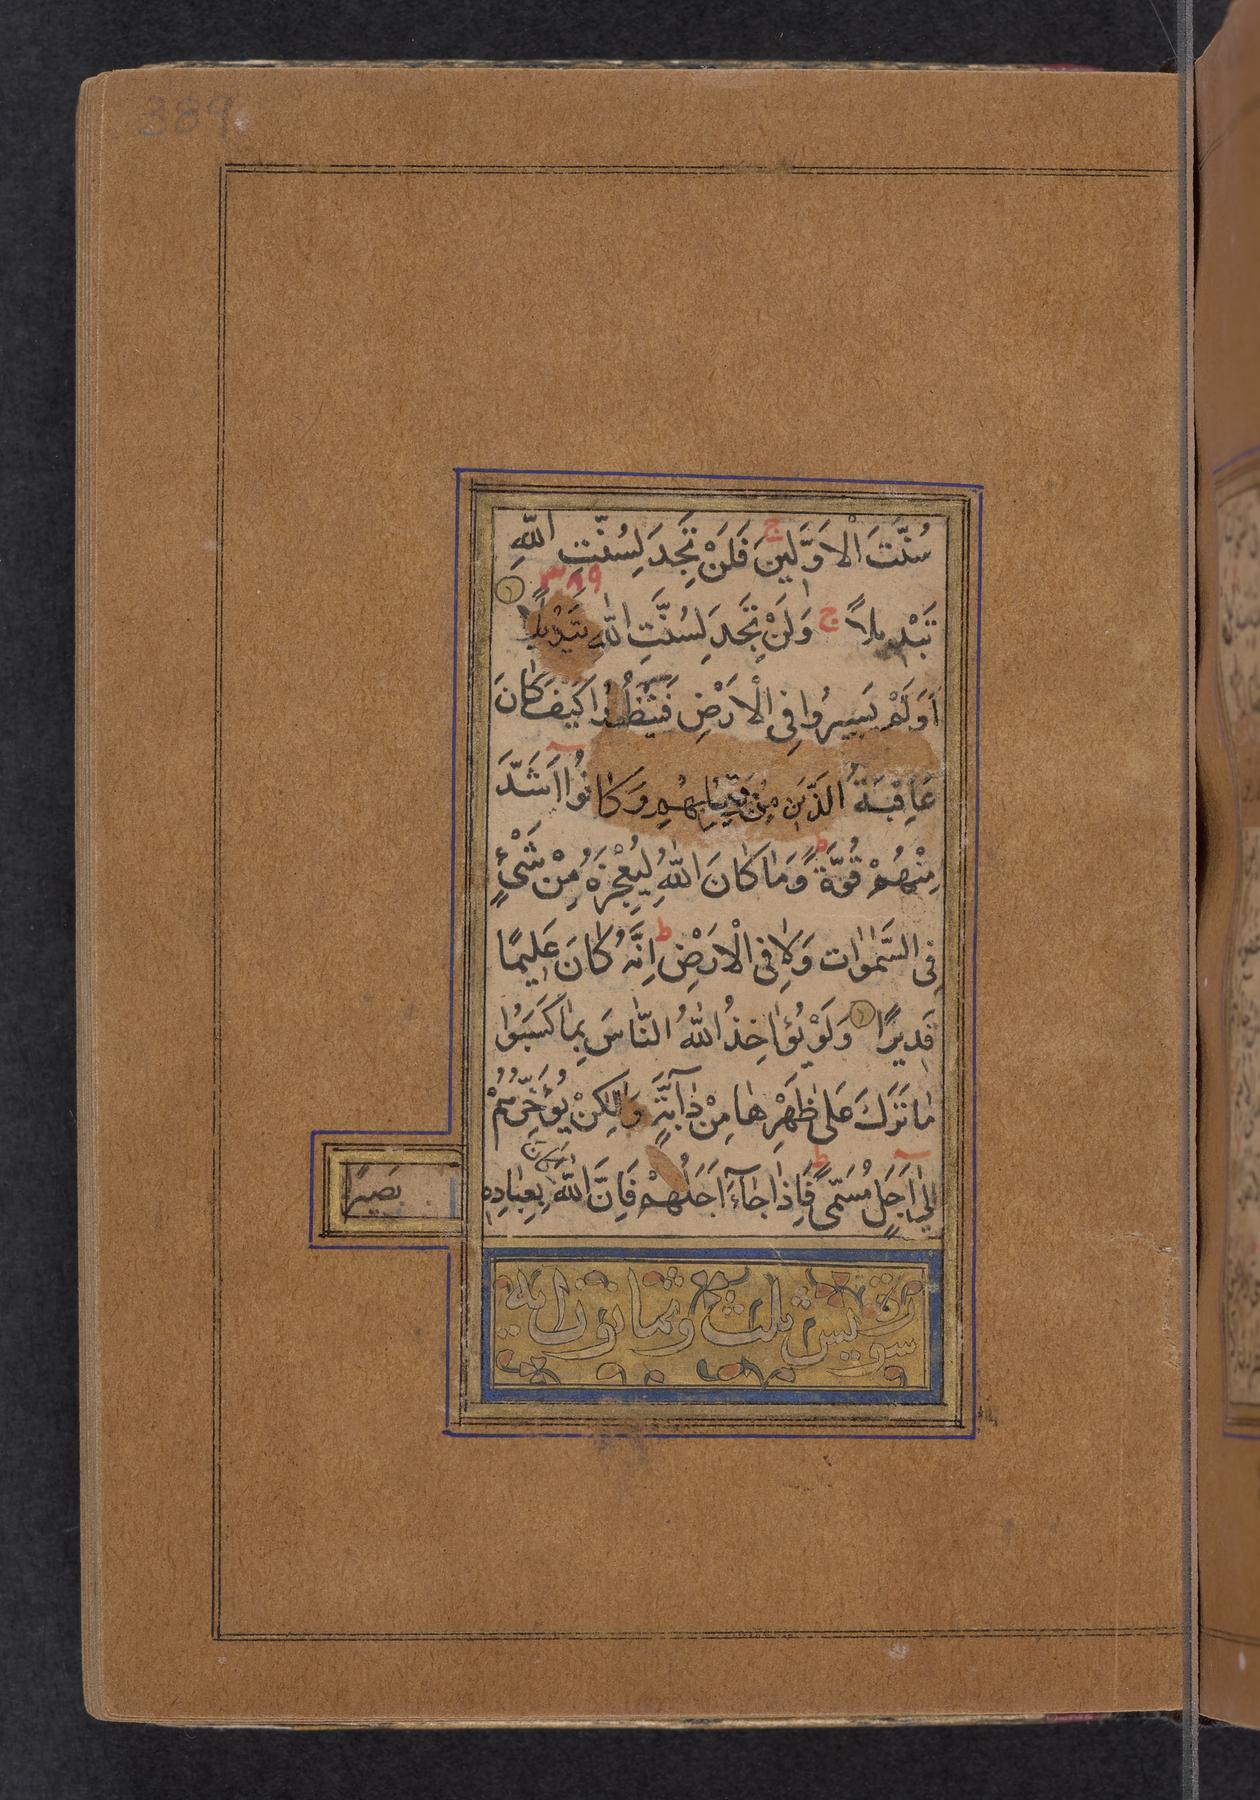 389
سُنَّتَ الْاَوَّلِينَ ج فَلَنْ تَجِدَ لِسُنَّتِ اللّٰهِ
٣٨٩
تَبْدِيلًا ج وَلَنْ تَجِدَ لِسُنَّتِ اللّٰهِ
اَوَلَمْ يَسِيرُوا فِى الْاَرْضِ فَيَنْظُرُوا كَيْفَ كَانَ
عَاقِبَةُ الَّذِينَ مِنْ قَبْلِهِمْ وَكَانُوا اَشَدَّ
مِنْهُمْ قُوَّةً ط وَمَا كَانَ اللّٰهُ لِيُعْجِزَهُ مِنْ شَىْءٍ
فِى السَّمٰوَاتِ وَلَا فِى الْاَرْضِ ط اِنَّهُ كَانَ عَلِيمًا
قَدِيرًا وَلَوْ يُؤَاخِذُ اللّٰهُ النَّاسَ بِمَا كَسَبُوا
مَا تَرَكَ عَلَى ظَهْرِهَا مِنْ دَآبَّةٍ وَلٰكِنْ يُؤَخِّرُهُمْ
اِلٰى اَجَلٍ مُسَمًّى ط فَاِذَا جَآءَ اَجَلُهُمْ فَاِنَّ اللّٰهَ كَانَ بِعِبَادِهِ
بَصِيرًا
سورة يس ثلث وثمانون ايه